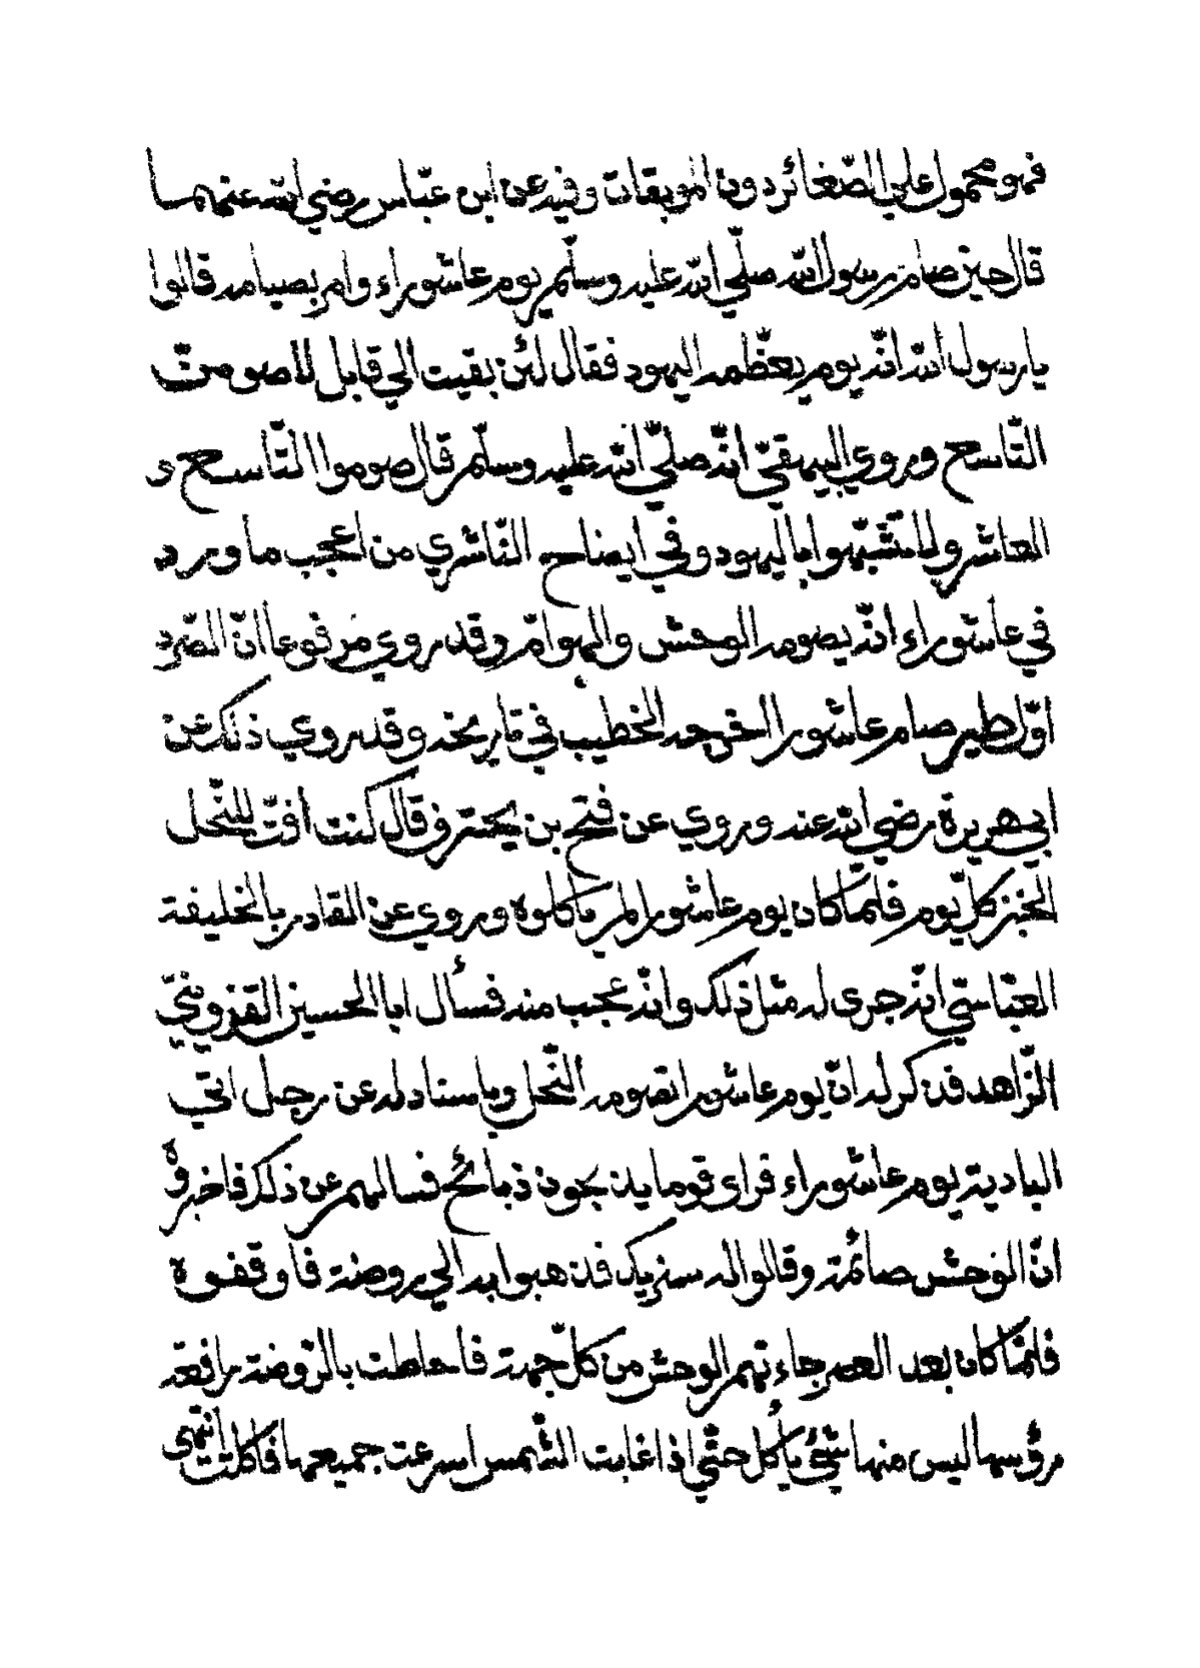 فهو محمول علي الصّغائر دون الموبقات وفيه عن ابن عبّاس رضي الله عنهما
قال حين صام رسول الله صلّي الله عليه وسلّم يوم عاشوراء وامر بصيامه قالوا
يا رسول الله انّه يوم يعظّمه اليهود فقال لئن بقيت الي قابل لاصومنّ
التّاسع وروي البيهقيّ انّه صلّي الله عليه وسلّم قال صوموا التّاسع و
العاشر ولا تتشبّهوا باليهود وفي ايضاح النّاشري من اعجب ما ورد
في عاشوراء انّه يصومه الوحش والهوامّ وقد روي مرفوعا انّ الصّرد
اوّل طير صام عاشورا اخرجه الخطيب في تاريخه وقد روي ذلك عن
ابي هريرة رضي الله عنه وروي عن فتح بن يحترف قال كنت افتّ للنّحل
الخبز كلّ يوم فلمّا كان يوم عاشورا لم ياكلوه وروي عن القادر بالخليفة
العبّاسيّ انّه جرى له مثل ذلك وانّه عجب منه فسأل ابا الحسين القزوينيّ
الزّاهد فذكر له انّ يوم عاشورا تصومه النّحل وباسناد له عن رجل اتي
البادية يوم عاشوراء فراى قوما يذبحون ذبائح فسالهم عن ذلك فاخبروه
انّ الوحش صائمة وقالوا له سنريك فذهبوا به الي روضة فاوقفوه
فلمّا كان بعد العصر جاءتهم الوحش من كلّ جهة فاحاطت بالرّوضة رافعة
رؤسها ليس منها شيئ يأكل حتّي اذا غابت الشّمس اسرعت جميعها فاكلت انتهى